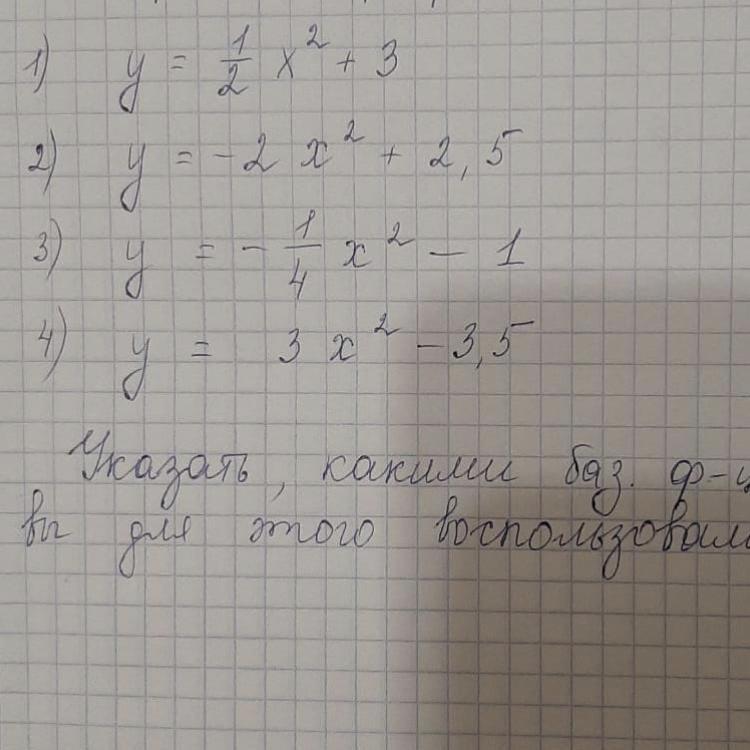 1) y = 1/2 x² + 3
2) y = -2 x² + 2,5
3) y = - 1/4 x² - 1
4) y = 3 x² - 3,5
Указать, какими баз. ф-ц
вы для этого воспользовали